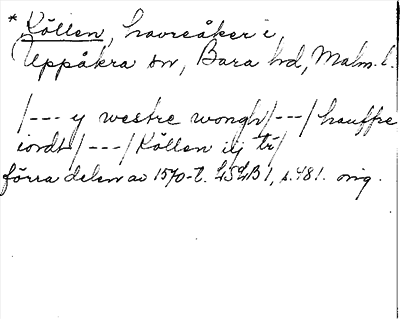 * Köllen, havreåker i
Uppåkra sn, Bara hd, Malm. l.
/--- y westre wongh/---/ hauffre
iordt/---/ Köllen iij tr/
förra delen av 1570-t. LSLB 1, s. 481. orig.